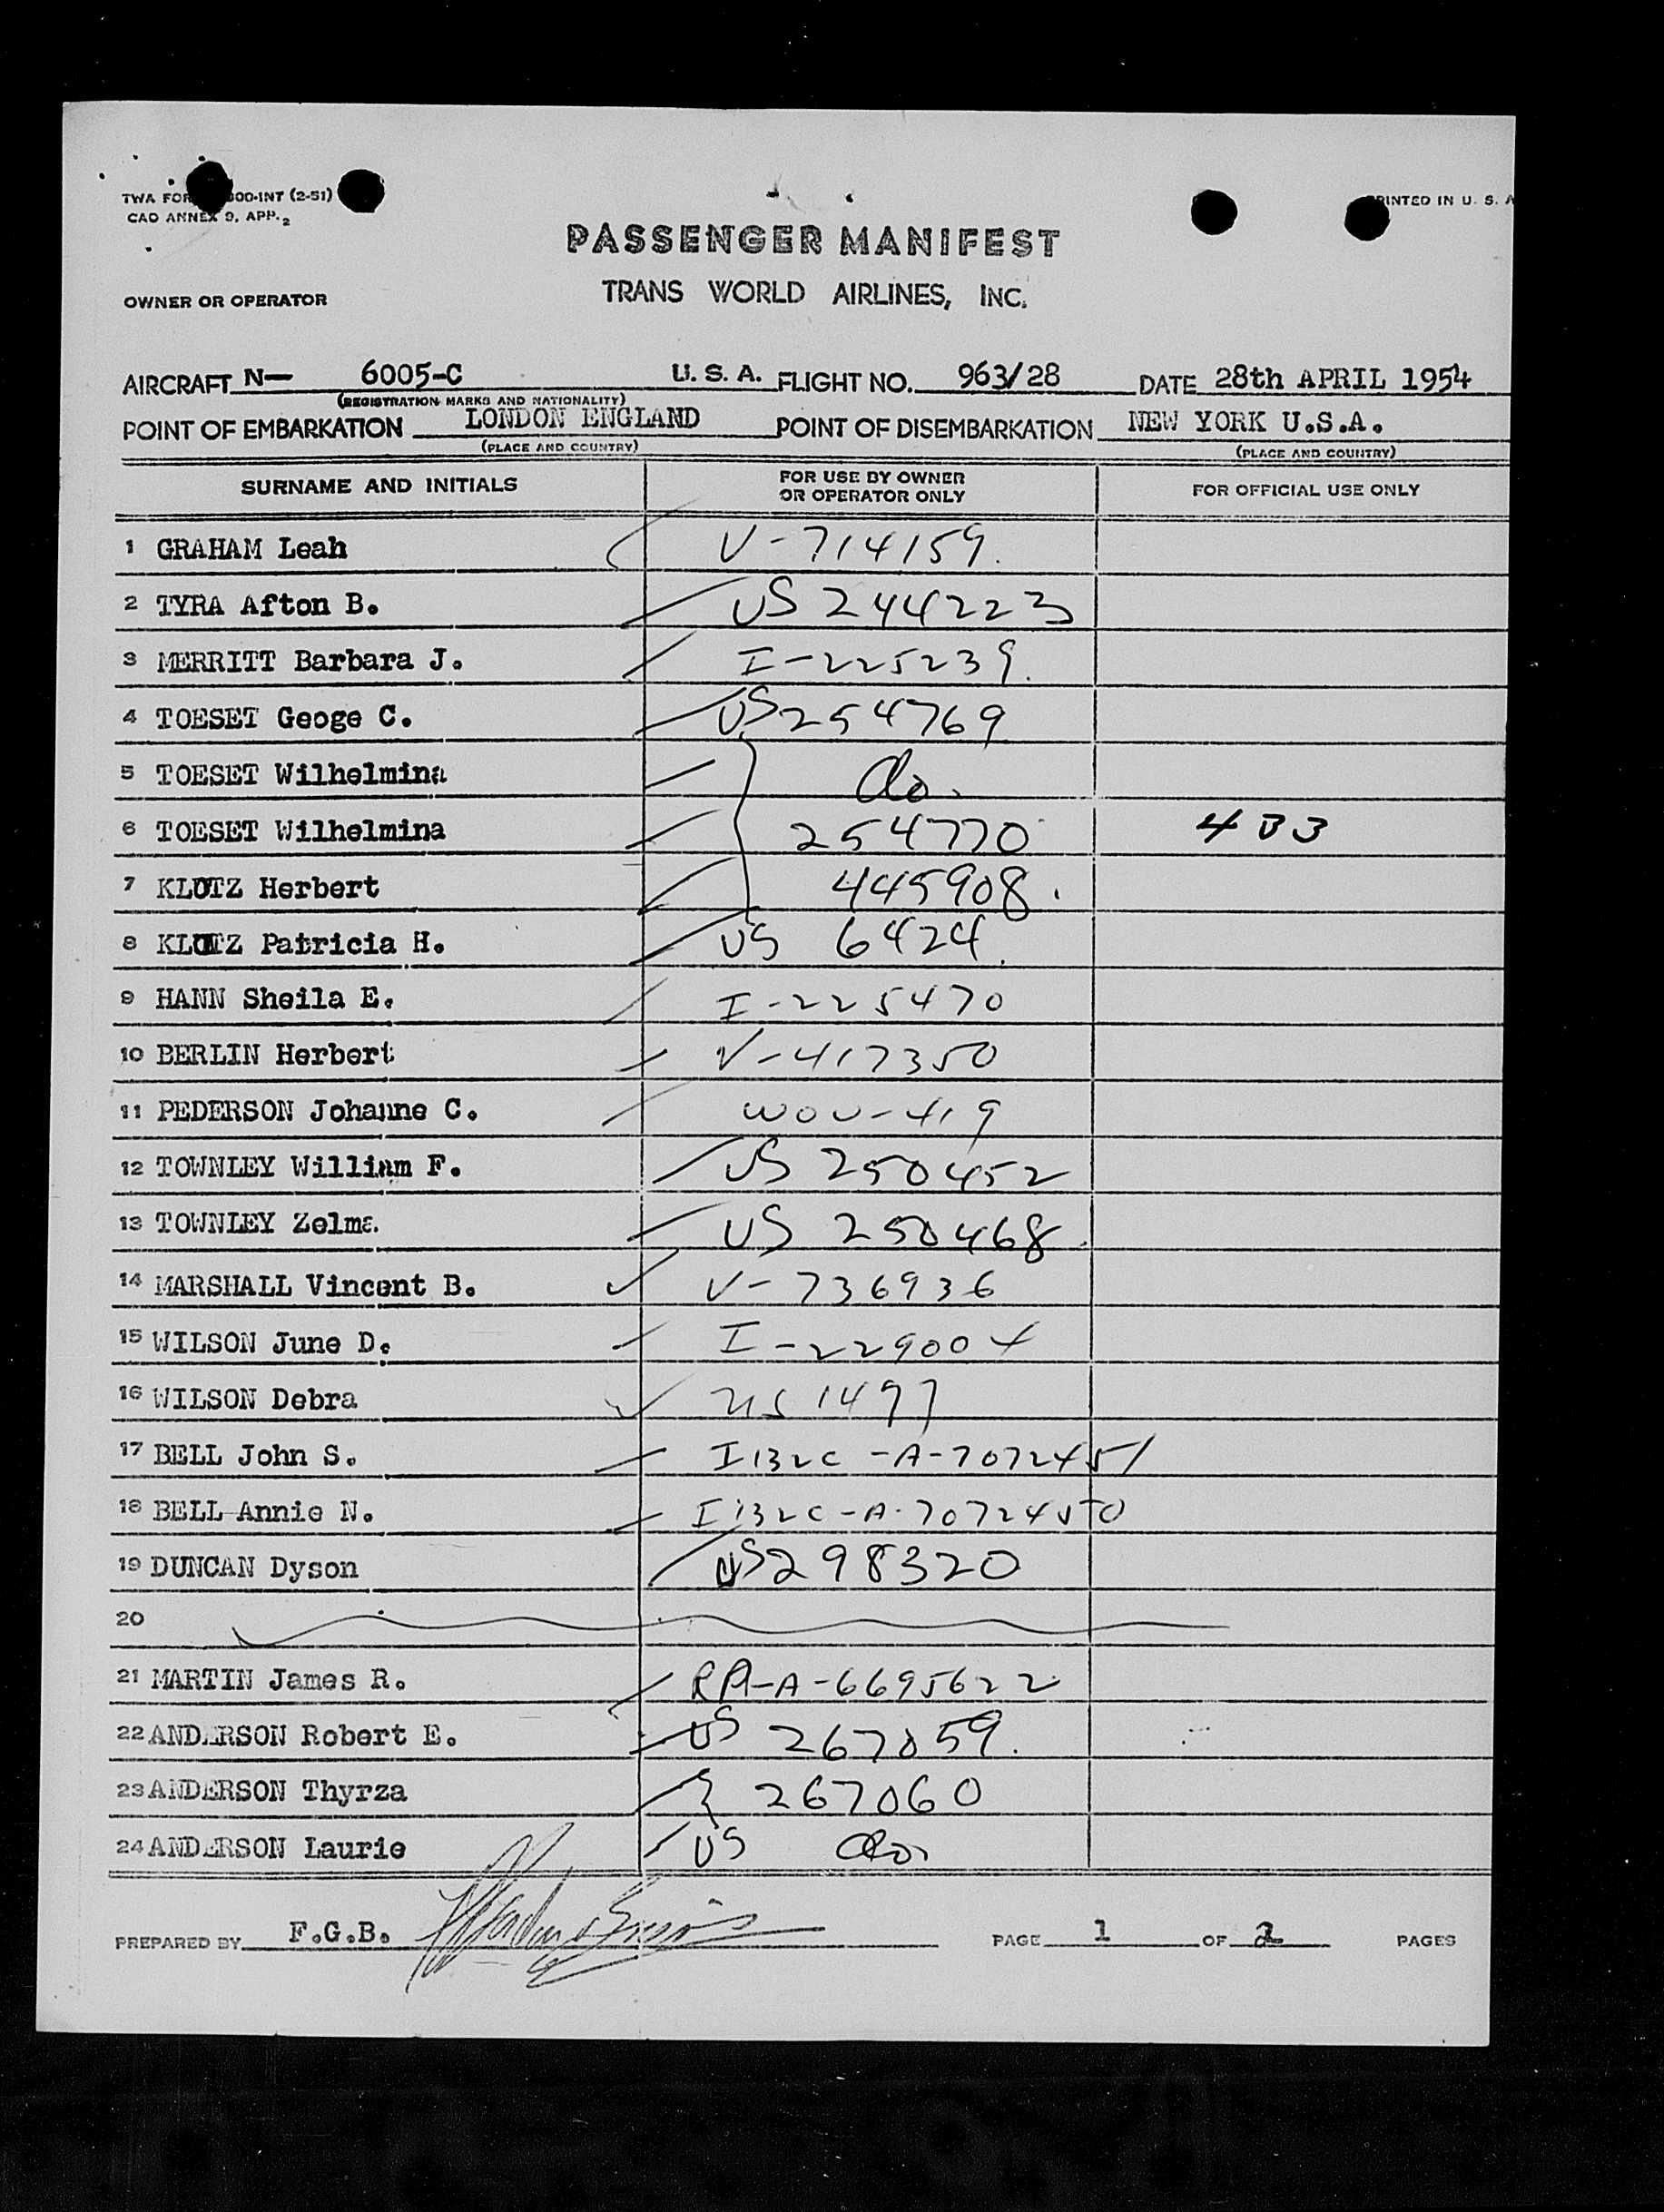 TWA FOR 00-INT (2-51)
PRINTED IN U. S. A
CAO ANNEX 9, APP. 2
PASSENGER MANIFEST
OWNER OR OPERATOR TRANS WORLD AIRLINES, INC.
AIRCRAFT N— 6005-C U. S. A. FLIGHT NO. 963/28 DATE 28th APRIL 1954
(REGISTRATION MARKS AND NATIONALITY)
POINT OF EMBARKATION LONDON ENGLAND POINT OF DISEMBARKATION NEW YORK U.S.A.
(PLACE AND COUNTRY) (PLACE AND COUNTRY)
SURNAME AND INITIALS FOR USE BY OWNER OR OPERATOR ONLY FOR OFFICIAL USE ONLY
1 GRAHAM Leah V-714159.
2 TYRA Afton B. US 244223
3 MERRITT Barbara J. I-225239.
4 TOESET Geoge C. US 254769
5 TOESET Wilhelmina do.
6 TOESET Wilhelmina 254770 4 B 3
7 KLOTZ Herbert 445908.
8 KLOTZ Patricia H. US 6424.
9 HANN Sheila E. I-225470
10 BERLIN Herbert V-417350
11 PEDERSON Johanne C. WOU-419
12 TOWNLEY William F. US 250452
13 TOWNLEY Zelma US 250468.
14 MARSHALL Vincent B. V-736936
15 WILSON June D. I-229004
16 WILSON Debra US 1497
17 BELL John S. I132C-A-7072451
18 BELL Annie N. I132C-A-7072450
19 DUNCAN Dyson US 298320
20
21 MARTIN James R. RA-A-6695622
22 ANDERSON Robert E. US 267059.
23 ANDERSON Thyrza 267060
24 ANDERSON Laurie US do.
PREPARED BY F.G.B. PAGE 1 OF 2 PAGES